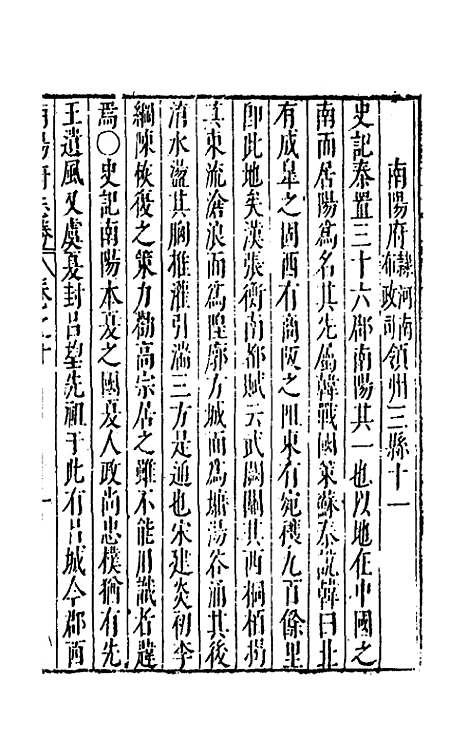 南陽府隸河南布政司領州二縣十一
史記秦置三十六郡南陽其一也以地在中國之
南而居陽爲名其先屬韓戰國策蘇秦說韓曰北
有成皐之固西有商阪之阻東有宛穰九百餘里
卽此地矣漢張衡南都賦云武闕關其西桐柏揭
其東流滄浪而爲隍廓方城而爲墉湯谷涌其後
淯水盪其胸推淮引湍三方是通也宋建炎初李
綱陳恢復之策力勸高宗居之雖不能用識者韙
焉○史記南陽本夏之國夏人政尚忠樸猶有先
王遺風又虞夏封呂望先祖于此有呂城今郡西
南陽府志 卷之十 一